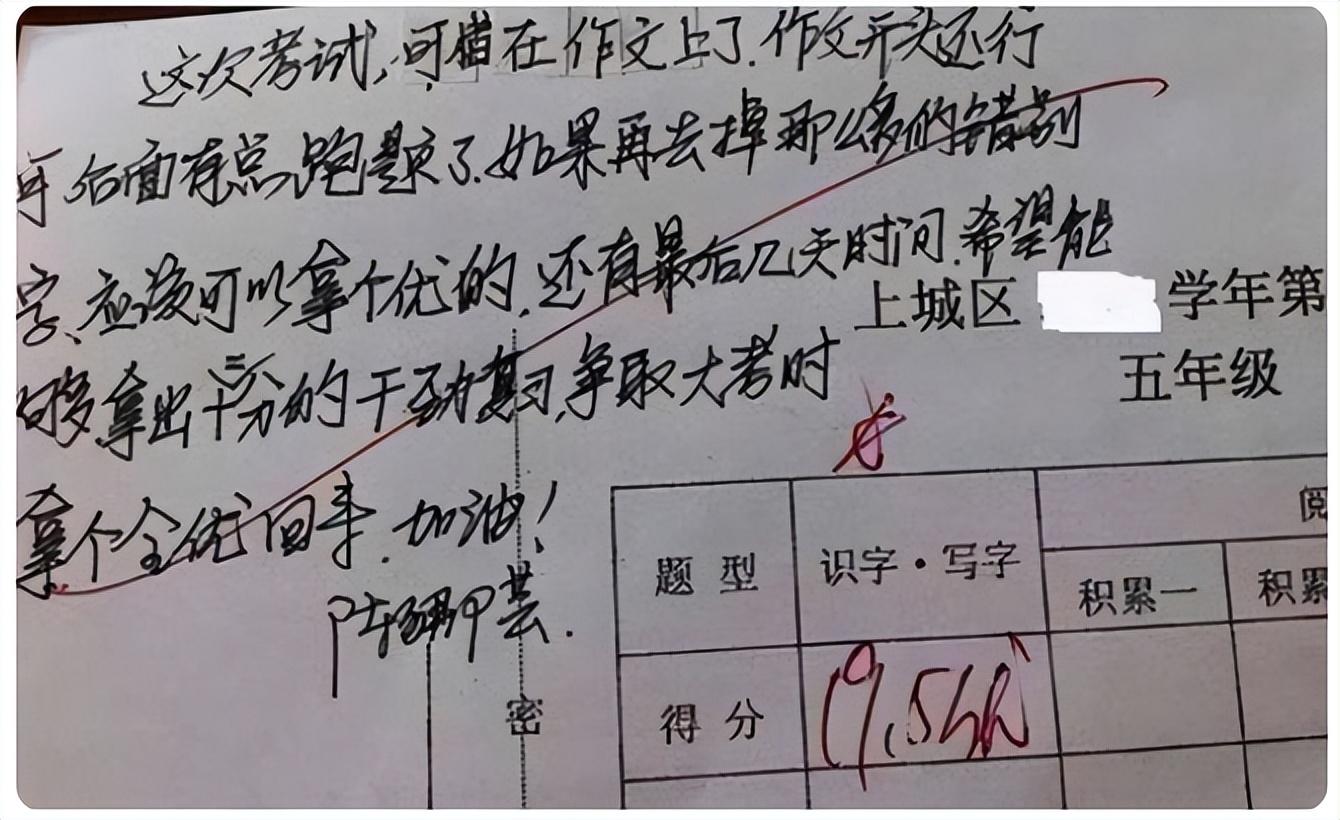 这次考试,可惜在作文上了.作文开头还行
后面有点跑题了.如果再去掉那么多的错别
字、应该可以拿个优的,还有最后几天时间.希望能
够拿出十二分的干劲复习,争取大考时
拿个全优回来.加油!
上城区 学年第
五年级
题型 识字·写字 阅
积累一 积累
得分 19.5
密